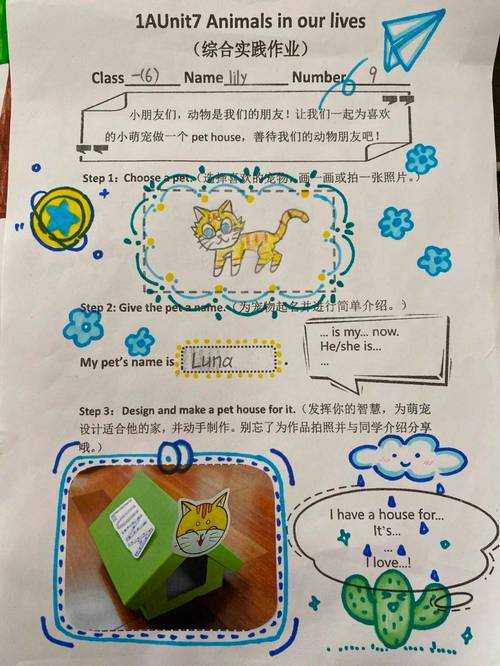 1AUnit7 Animals in our lives
（综合实践作业）
Class 一(6) Name lily Number 9
小朋友们，动物是我们的朋友！让我们一起为喜欢
的小萌宠做一个 pet house，善待我们的动物朋友吧！
Step 1: Choose a pet.（选择喜欢的宠物，画一画或拍一张照片。）
Step 2: Give the pet a name.（为宠物起名并进行简单介绍。）
... is my... now.
He/she is...
...
My pet's name is Luna
Step 3: Design and make a pet house for it.（发挥你的智慧，为萌宠
设计适合他的家，并动手制作。别忘了为作品拍照并与同学介绍分享
哦。）
I have a house for...
It's...
...
I love...!